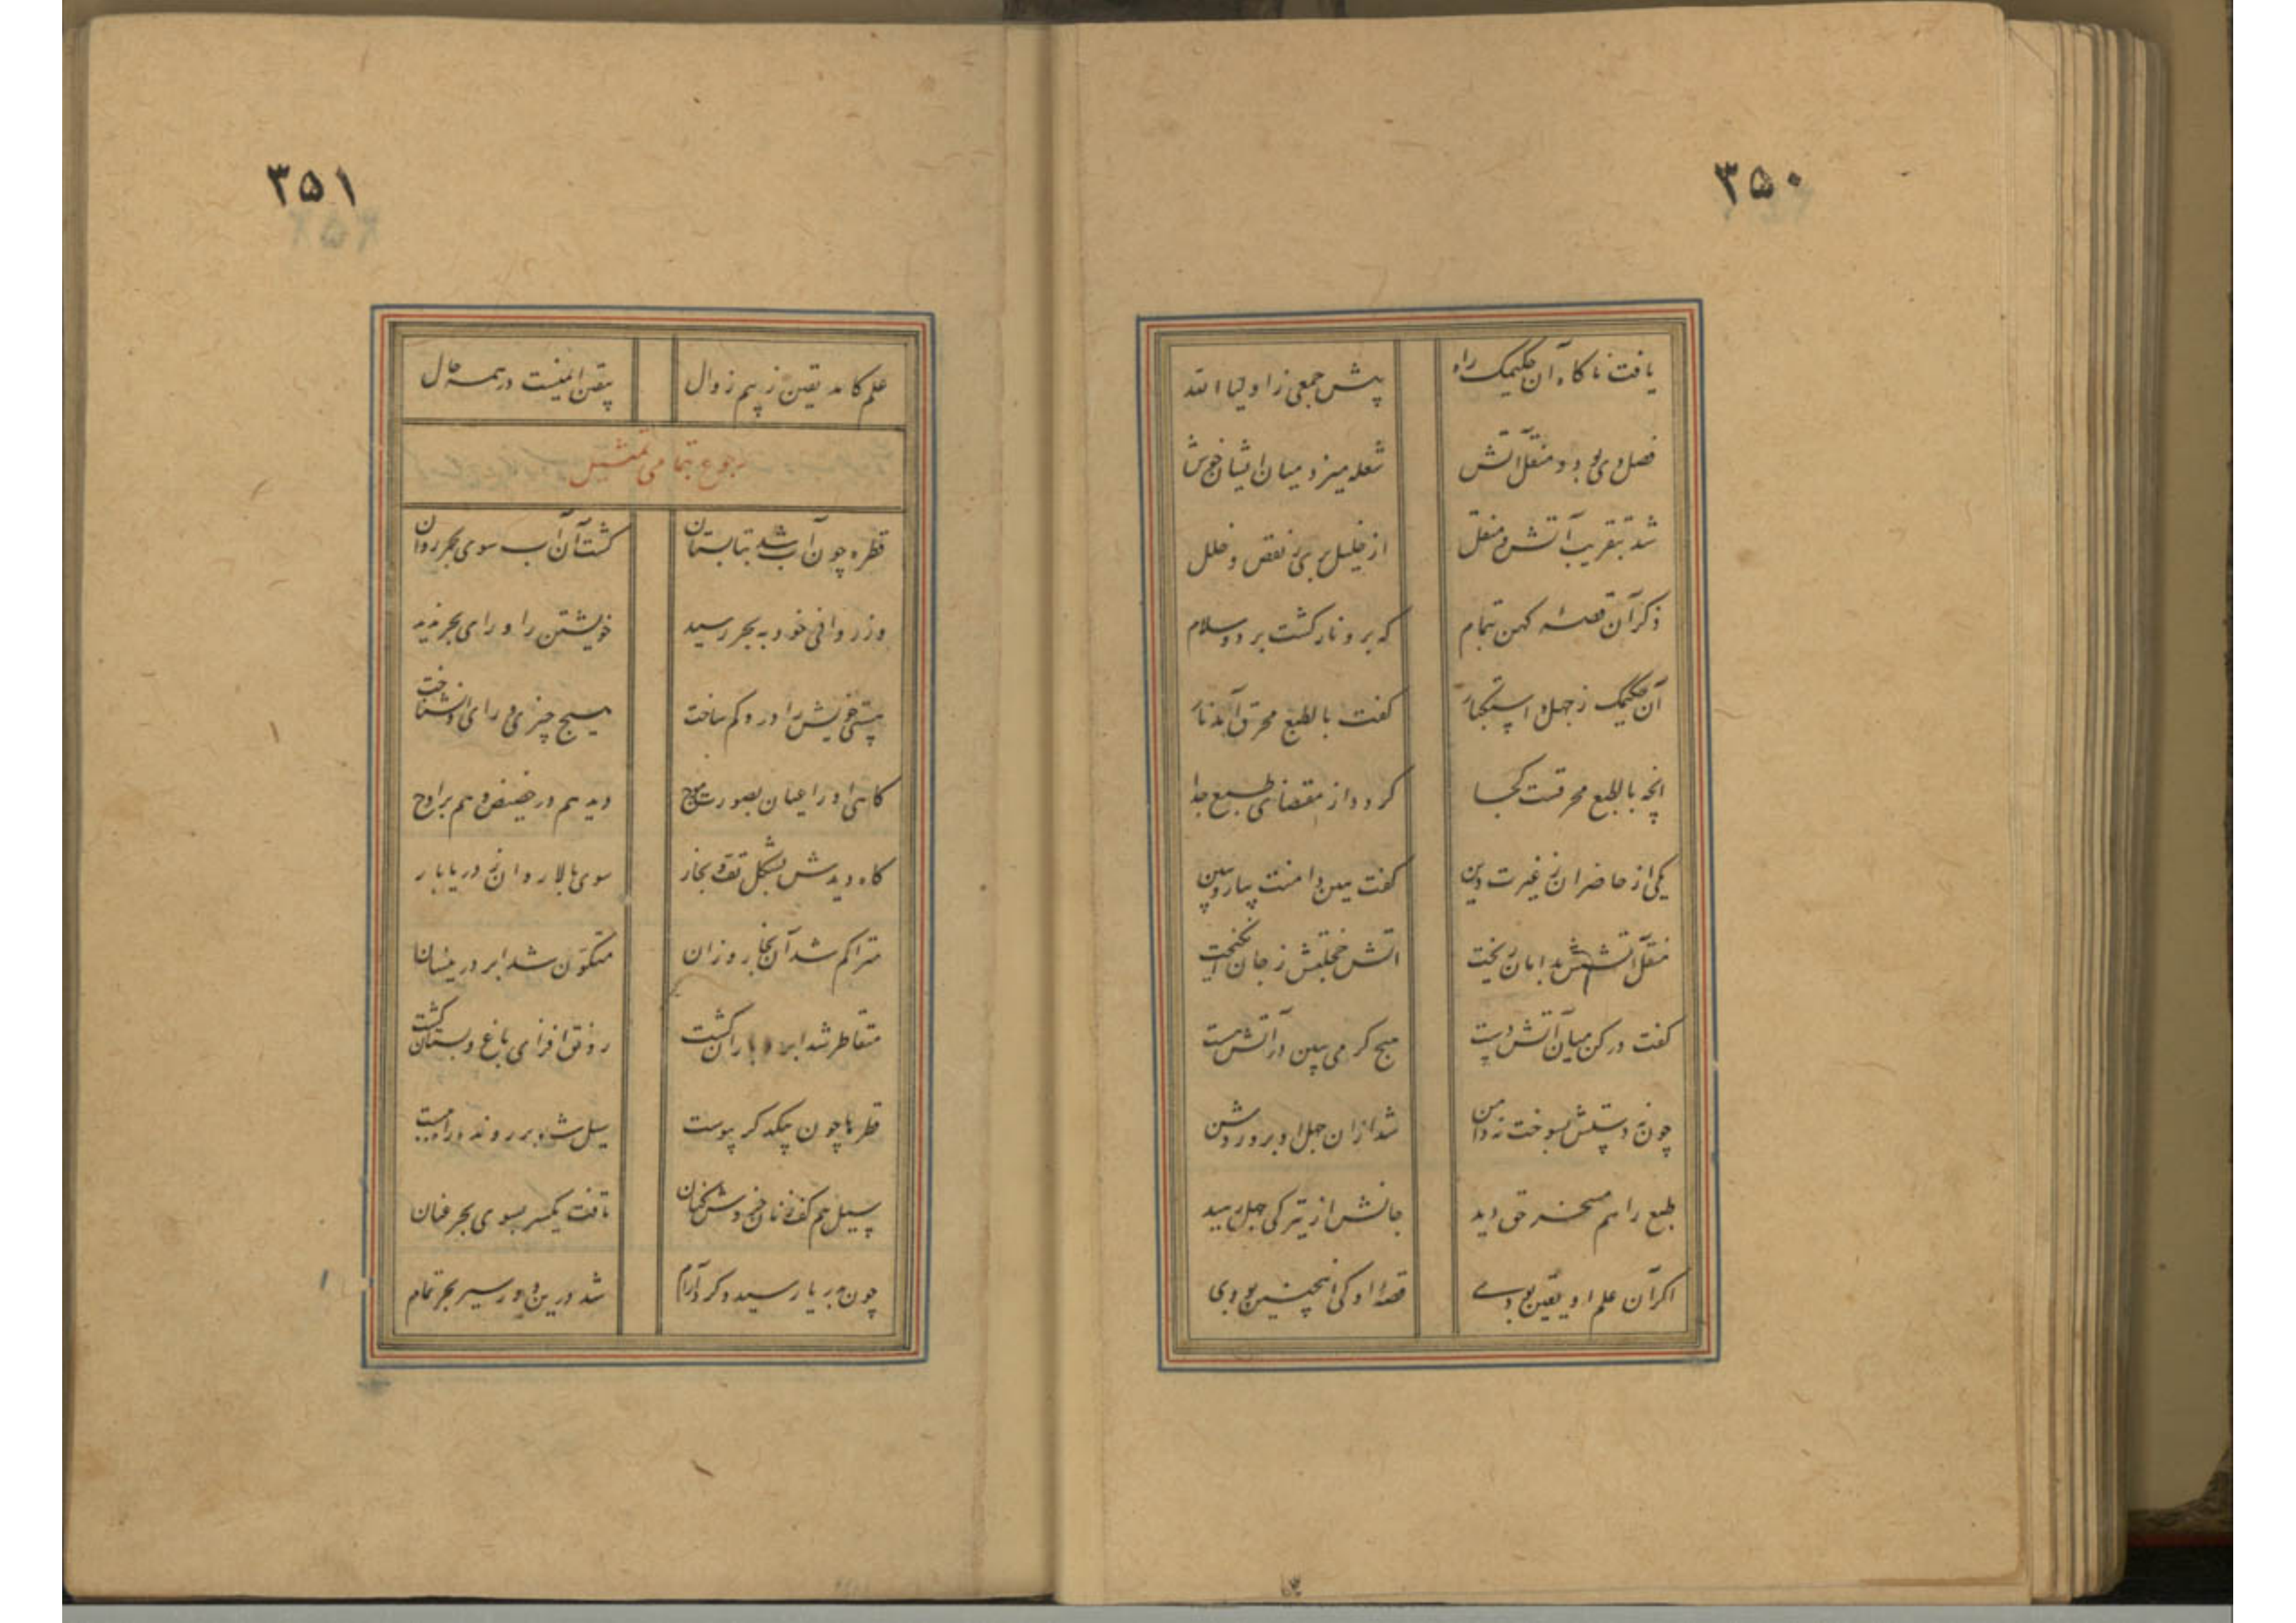 ۳۵۰
یافت ناکاه آن حکیمک راه پیش جمعی ز اولیا الله
فصل دی بود و منقل آتش شعله میزد میان ایشان خوش
شد بتقریب آتش و منقل از خلیل بری ز نقص و خلل
ذکر آن قصه کهن بتمام که برو نار کشت برد و سلام
آن حکیمک ز جهل و استکبار کفت بالطبع محرق آمد نار
انچه بالطبع محرقست کجا کردد از مقتضای طبع جدا
یکی از حاضران ز غیرت دین کفت هین دامنت بیار و ببین
منقل آتشش بدامان ریخت آتش خجلتش ز جان انکیخت
کفت در کن میان آتش دست هیچ کرمی ببین در آتش هست
چون نه دستش بسوخت نه دامن شد ازان جهل او برو روشن
طبع را هم مسخر حق دید جانش از تیرکی جهل رهید
اکر آن علم او یقین بودی قصه او کی اینچنین بودی
۳۵۱
علم کامد یقین ز بیم زوال بیقین ایمنست در همه حال
رجوع بتمامی تمثیل
قطره چون آب شد بتابستان کشت آن آب سوی بحر روان
وز روانی خود به بحر رسید خویشتن را ورای بحر ندید
هستی خویش را درو کم ساخت هیچ چیزی ورای او نشناخت
کاهی او را عیان بصورت موج دید هم در حضیض و هم بر اوج
کاه دیدش بشکل تف و بخار سوی بالا روان ز دریا بار
متراکم شد آن بخار و زان متکون شد ابر در نیسان
متقاطر شد ابر و باران کشت رونق افزای باغ و بستان کشت
قطرها چون بیکدکر پیوست سیل شد بر رونده راه ببست
سیل هم کف زنان خروش کنان تافت یکسر بسوی بحر عنان
چون بدریا رسید و کرد آرام شد درین دور سیر بحر تمام